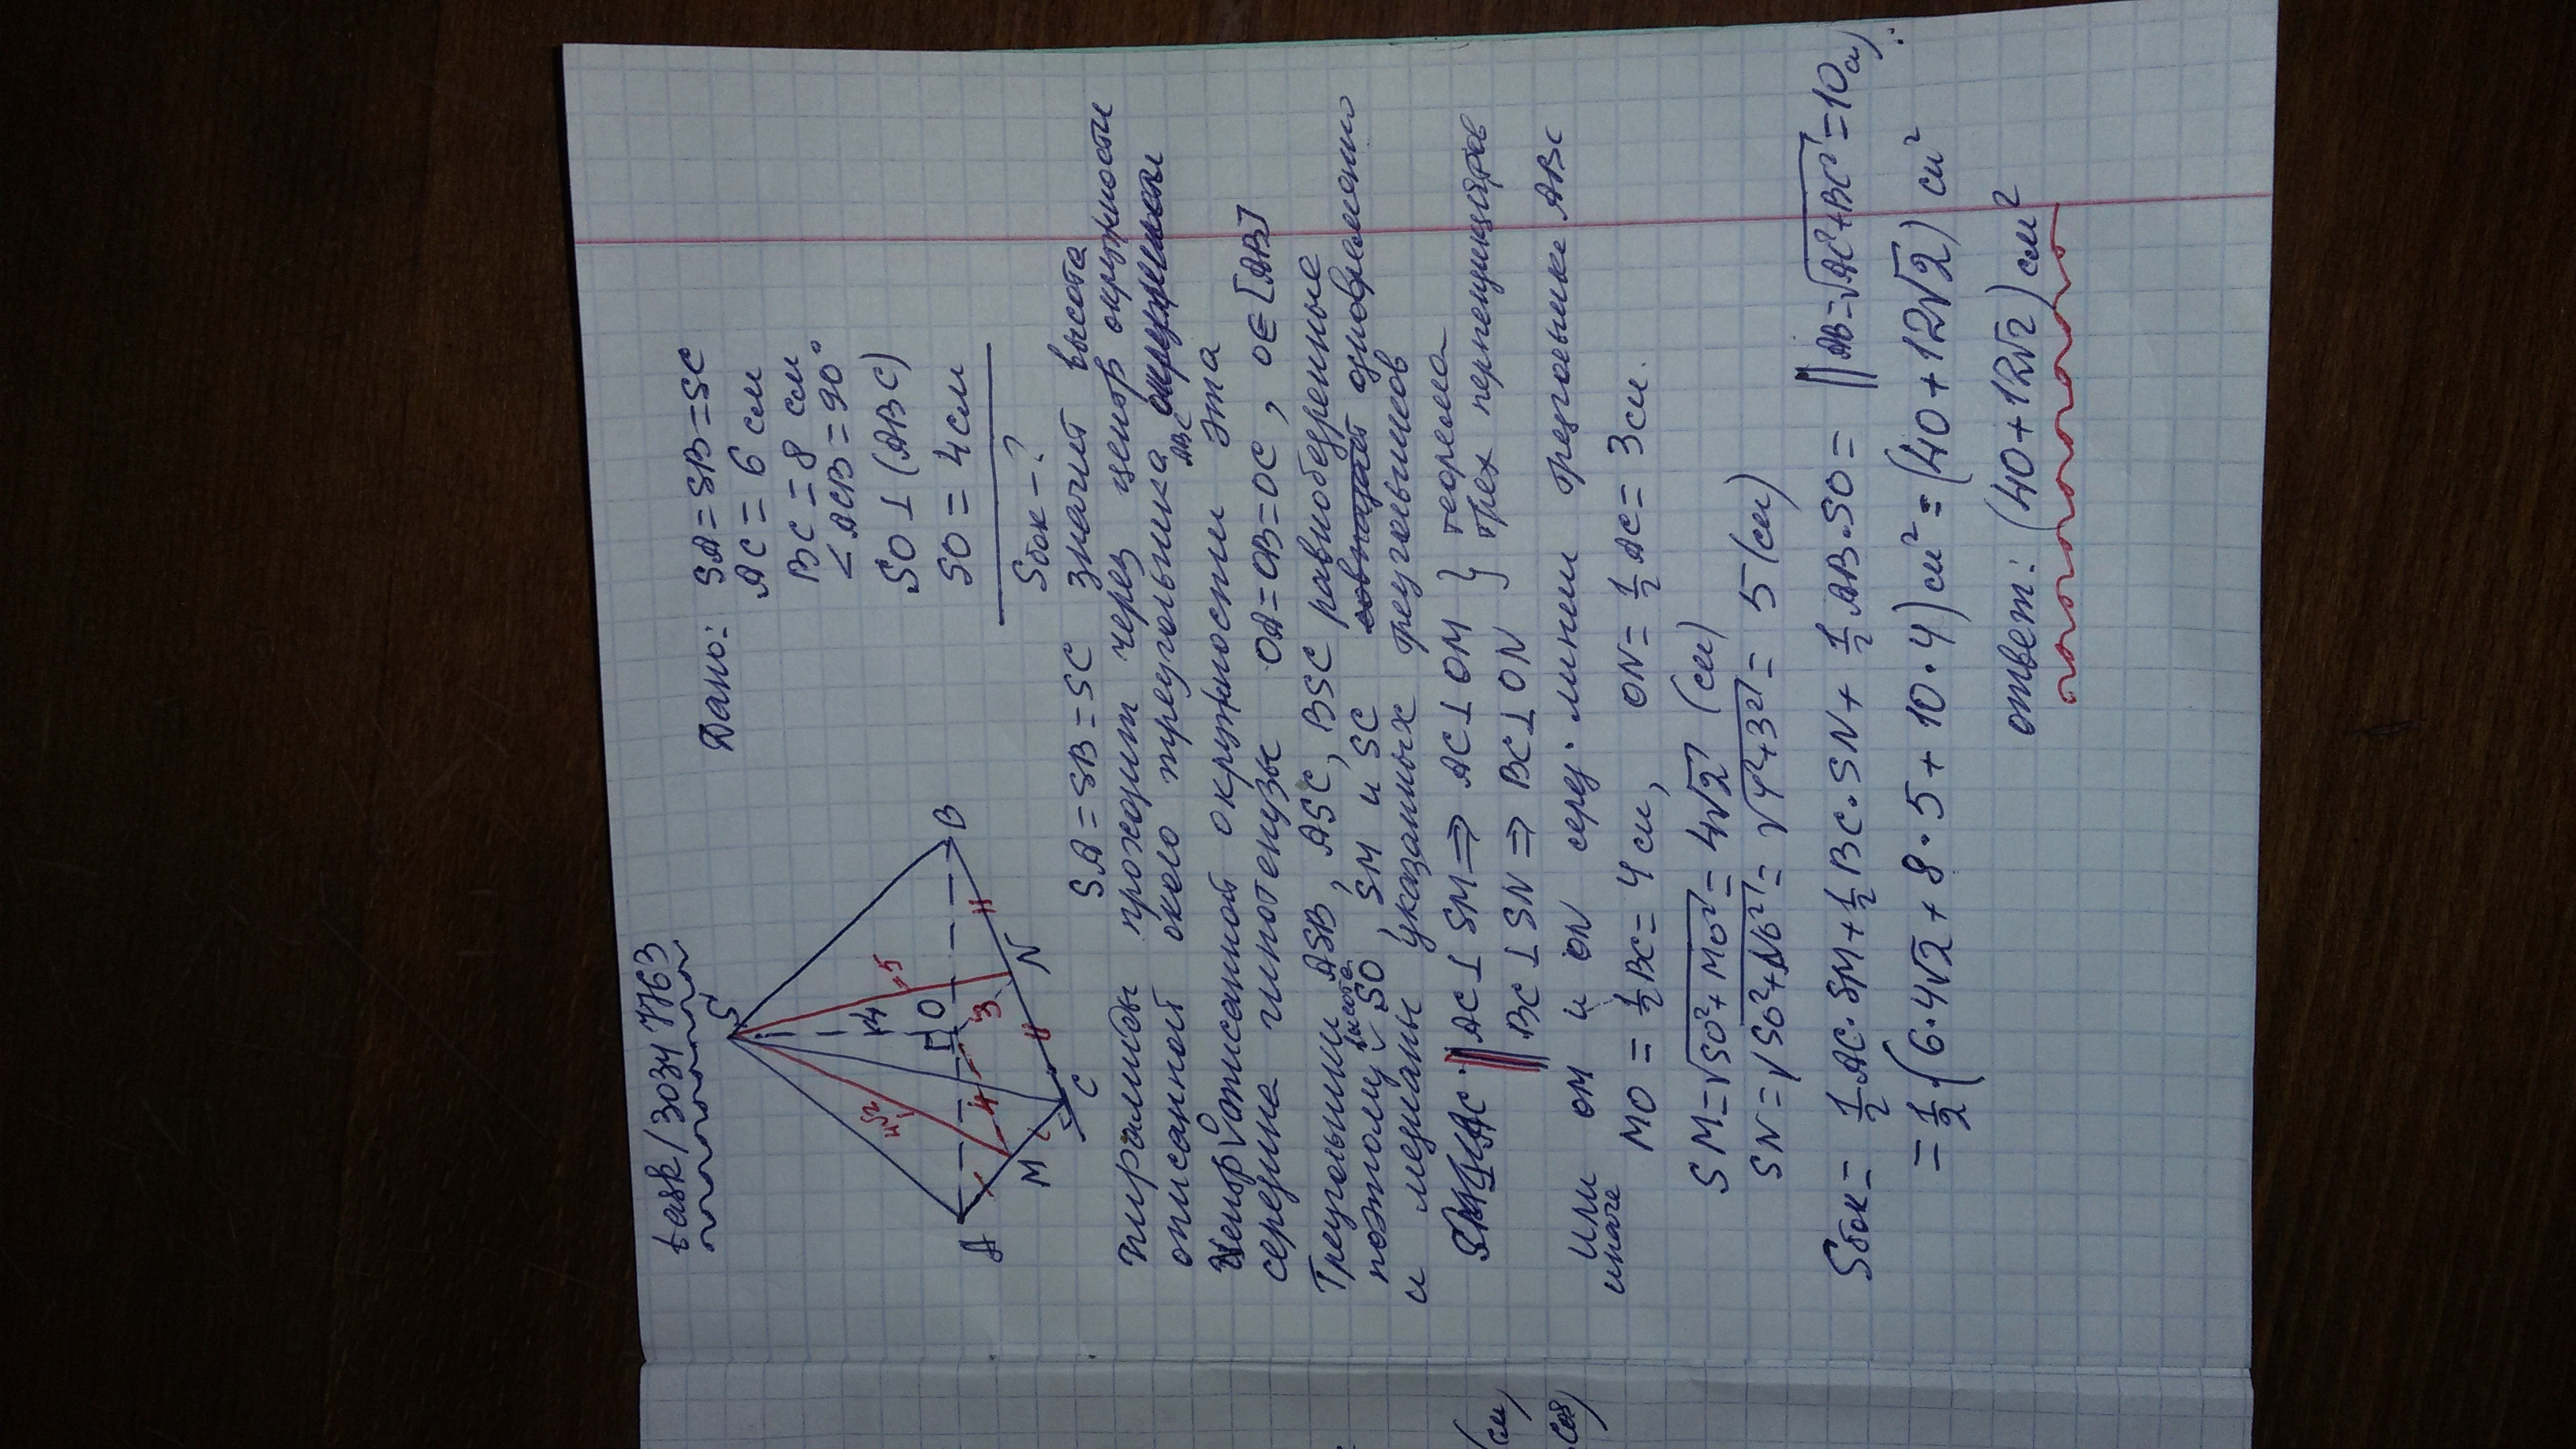 task/30347763
S
5
4√2
4
O
4
3
A
B
M
N
C
Дано: SA = SB = SC
AC = 6 см
BC = 8 см
∠ACB = 90°
SO ⊥ (ABC)
SO = 4 см
Sбок - ?
SA = SB = SC значит высота
пирамиды проходит через центр окружности
описанной около треугольника ABC
Центр O описанной окружности эта
середина гипотенузы OA = OB = OC, O ∈ [AB]
Треугольники ASB, ASC, BSC равнобедренные
поэтому высота SO, SM и SC одновременно
и медианы указанных треугольников
AC ⊥ SM ⇒ AC ⊥ OM } теорема
BC ⊥ SN ⇒ BC ⊥ ON } трех перпендикуляров
или OM и ON серед. линии треугольника ABC
иначе
MO = 1/2 BC = 4 см, ON = 1/2 AC = 3 см.
SM = √SO² + MO² = 4√2 (см)
SN = √SO² + NO² = √4² + 3² = 5 (см)
Sбок = 1/2 AC · SM + 1/2 BC · SN + 1/2 AB · SO = || AB = √AC² + BC² = 10 см ||
= 1/2 (6 · 4√2 + 8 · 5 + 10 · 4) см² = (40 + 12√2) см²
ответ: (40 + 12√2) см²
(см)